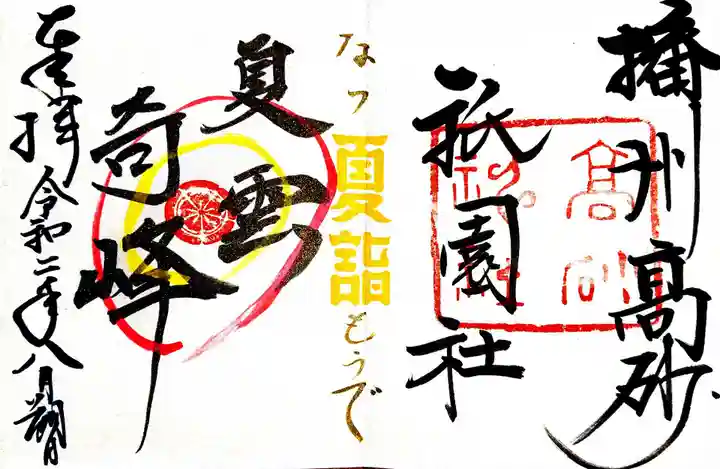 播州高砂
祇園社
高砂
神社
なつ
夏詣
もうで
夏雲
奇峰
奉拝 令和二年八月朔日